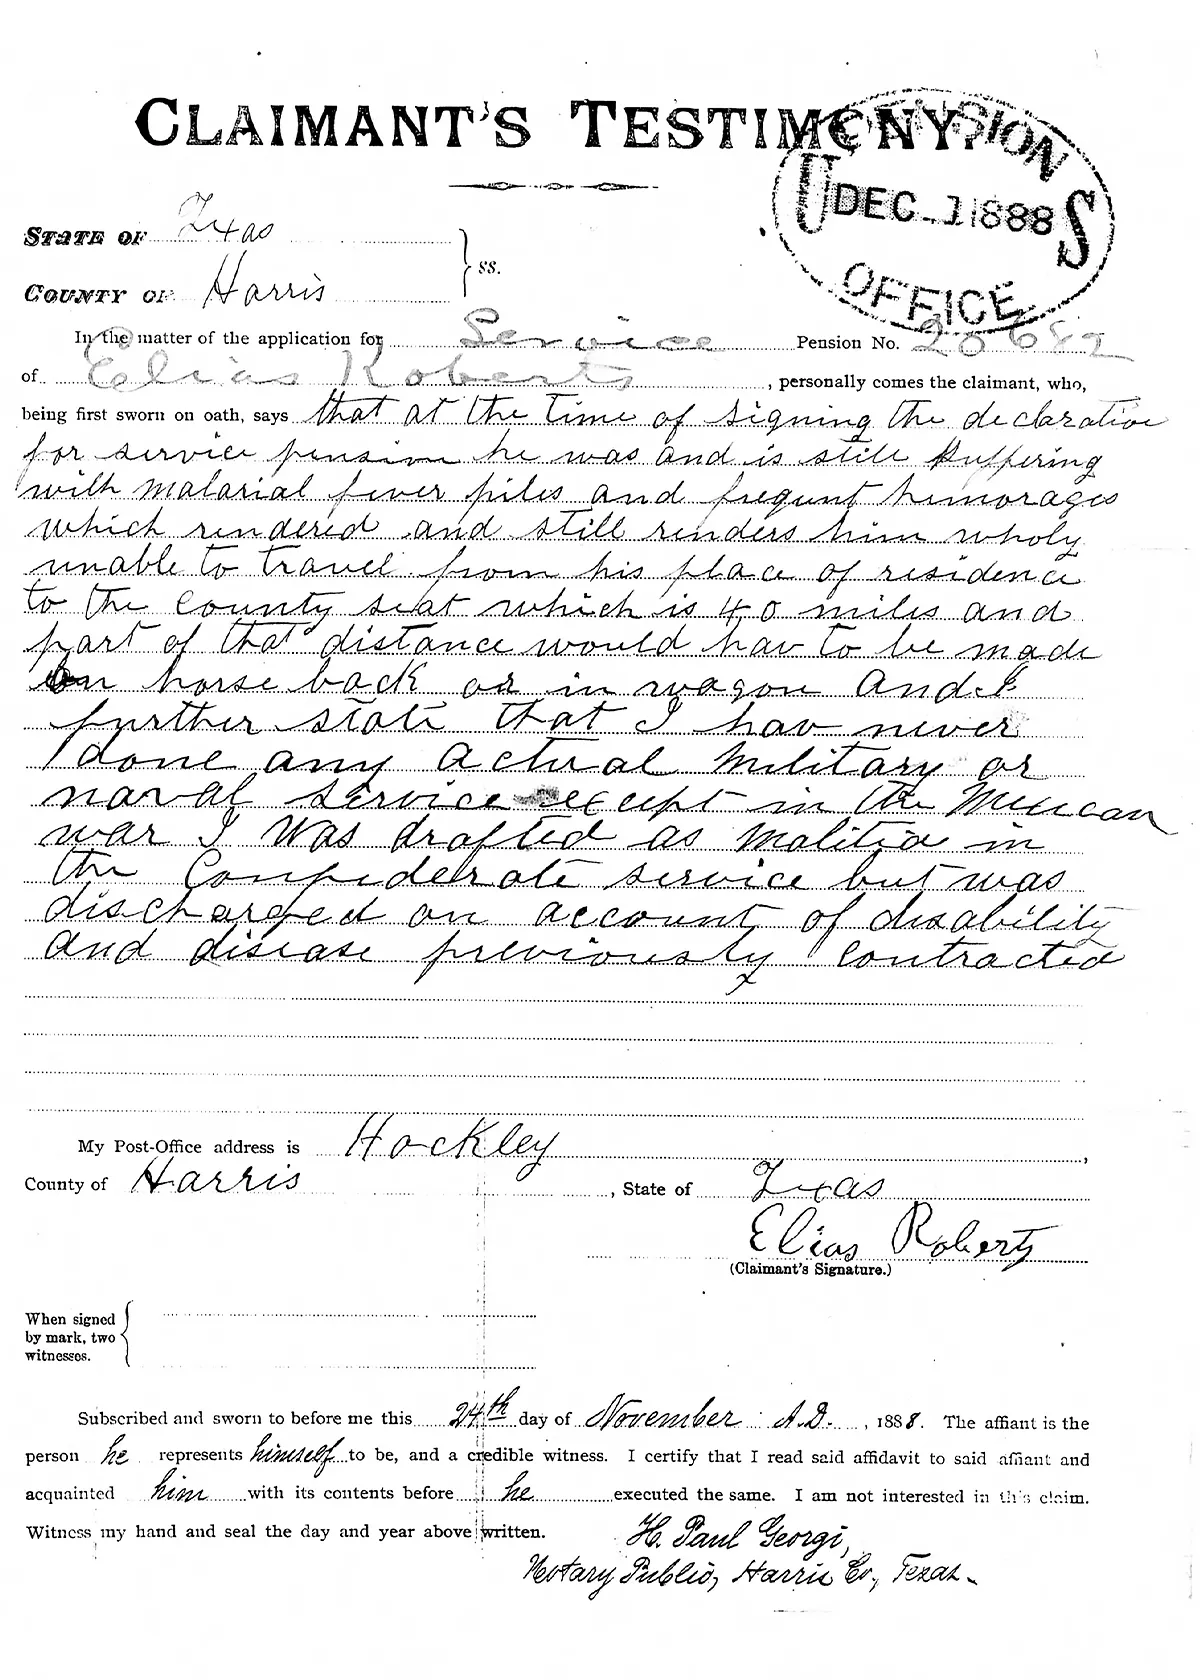 CLAIMANT'S TESTIMONY.
U. PENSION S
DEC. 1 1888
OFFICE
STATE OF Texas
COUNTY OF Harris } ss.
In the matter of the application for Service Pension No. 20682
of Elias Roberts, personally comes the claimant, who,
being first sworn on oath, says that at the time of signing the declaration
for service pension he was and is still suffering
with malarial fever piles and frequent hemorages
which rendered and still renders him wholy
unable to travel from his place of residence
to the County seat which is 40 miles and
part of that distance would hav to be made
on horse back or in wagon And I
further state that I hav never
done any actual military or
naval service except in the Mexican
war I was drafted as malitia in
the Confederate service but was
discharged on account of disability
and disease previously contracted
My Post-Office address is Hockley,
County of Harris, State of Texas
Elias Roberts
(Claimant's Signature.)
When signed
by mark, two
witnesses.
Subscribed and sworn to before me this 24th day of November A.D., 1888. The affiant is the
person he represents himself to be, and a credible witness. I certify that I read said affidavit to said affiant and
acquainted him with its contents before he executed the same. I am not interested in this claim.
Witness my hand and seal the day and year above written.
H. Paul Georgi,
Notary Public, Harris Co., Texas.